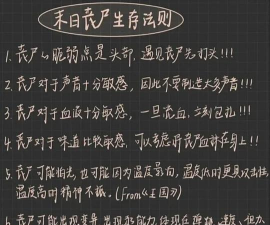 末日丧尸生存法则
1. 丧尸的脆弱点是头部，遇见丧尸先打头!!!
2. 丧尸对于声音十分敏感，因此不要制造太多声音!!!
3. 丧尸对于血液十分敏感，一旦流血，立刻包扎!!!
4. 丧尸对于味道比较敏感，可以考虑将丧尸血淋在身上!!
5. 丧尸可能怕光，也可能因为温度影响，温度低时更具攻击性
温度高时精神不振。(from《王国》)
6. 丧尸可能出现变异，出现的能力